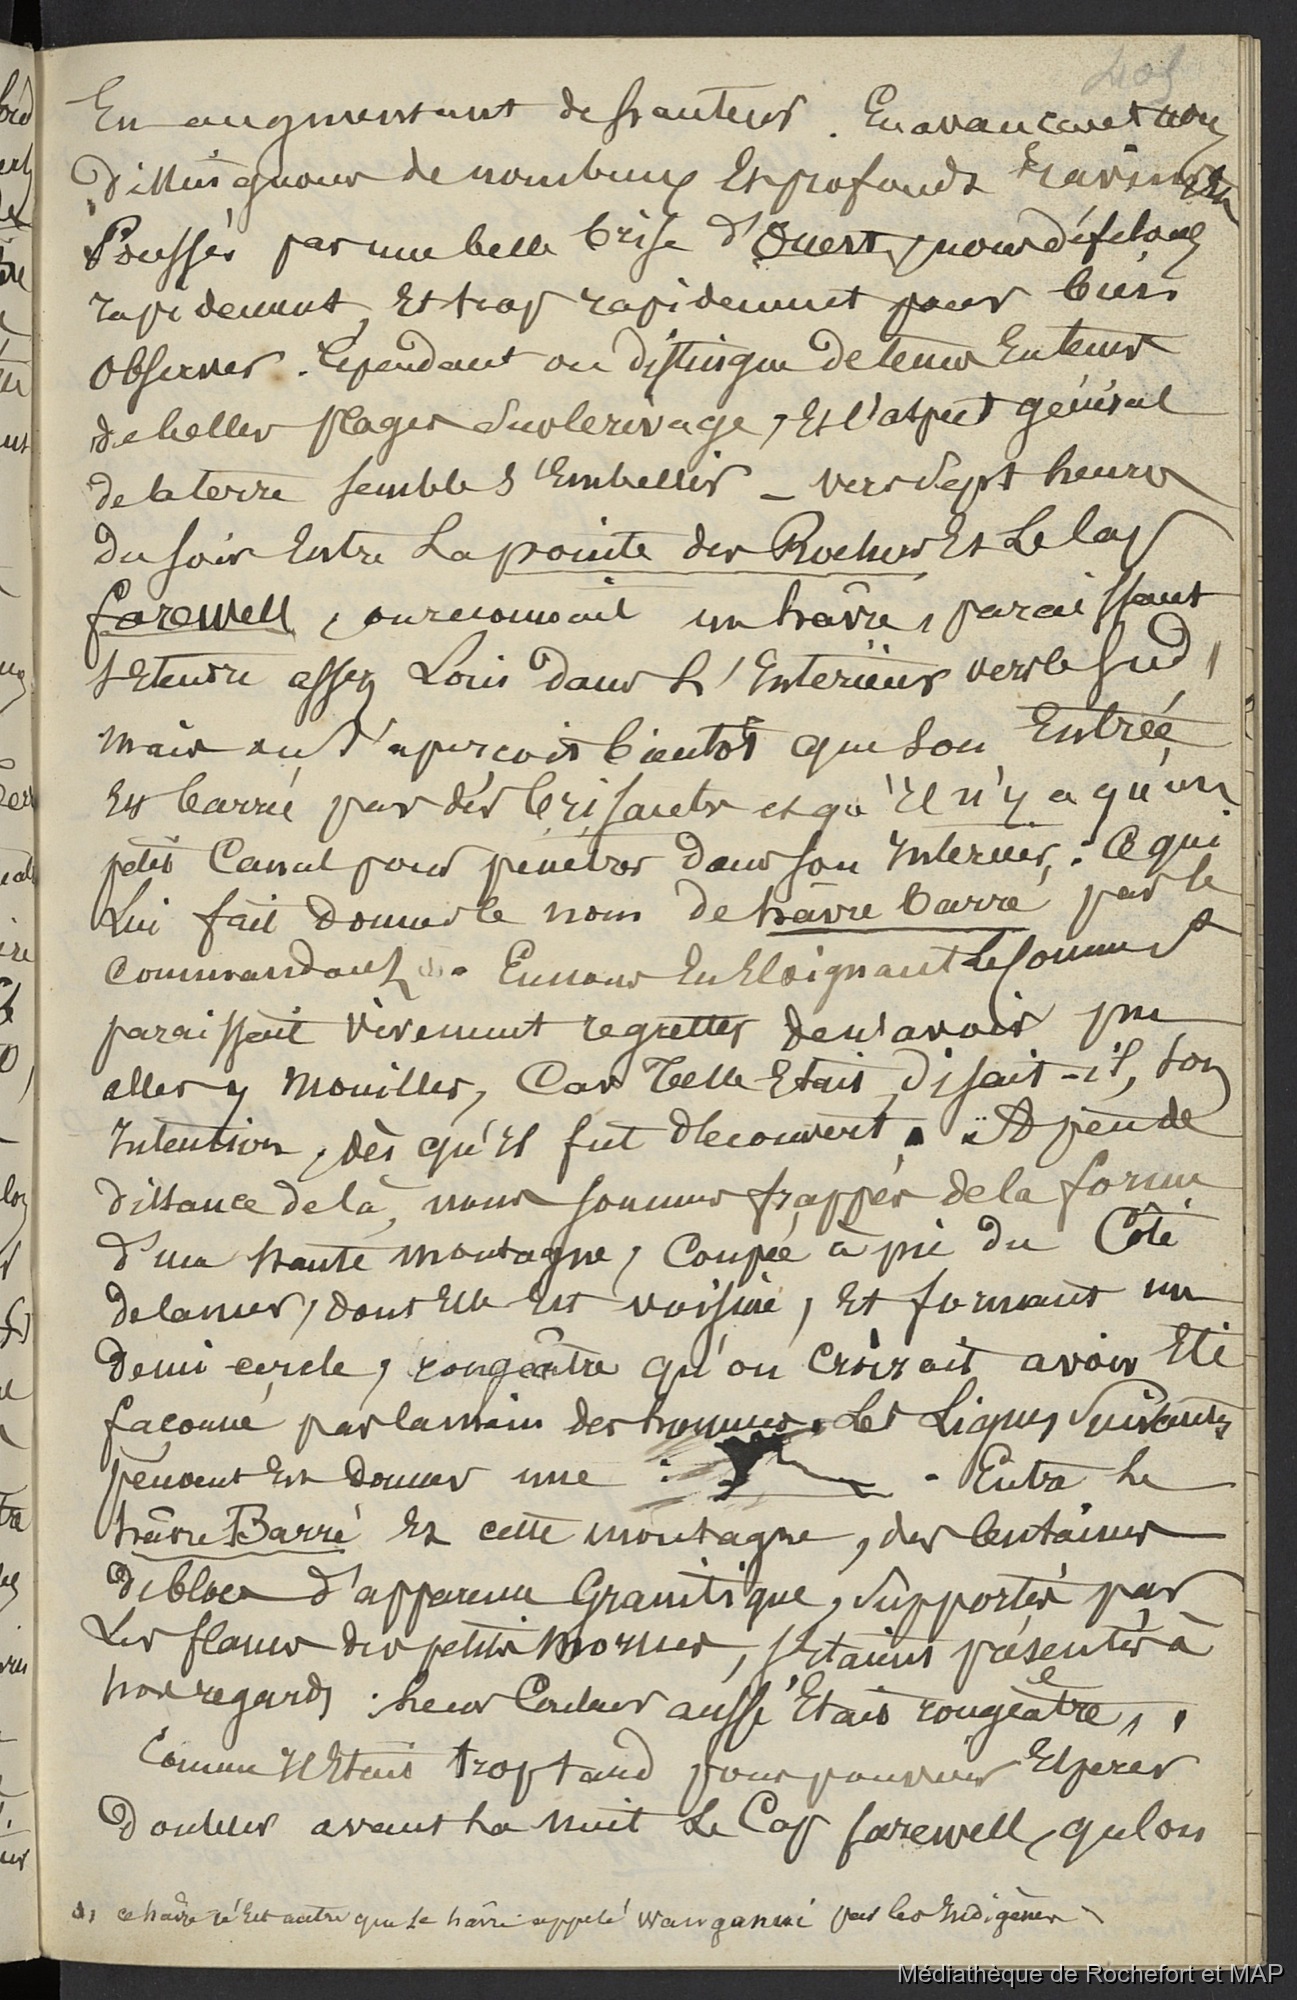 405
En augmentant de hauteur. En avançant nous
distinguons de nombreux et profonds ravins
Poussés par une belle brise d'Ouest, nous défilons
rapidement, Et trop rapidement pour bien
observer. Cependant on distingue de tems En tems
de belles plages sur le rivage, Et l'aspect général
de la terre semble s'Embellir _ vers sept heures
du soir Entre La pointe des Rochers Et Le Cap
farewell, on reconnait un hâvre, paraissant
s'Etendre assez Loin dans L'Interieur vers le sud,
mais on s'aperçoit bientôt que son Entrée
Est barrée par des brisants et qu'Il n'y a qu'un
petit Canal pour pénétrer dans son Interieur. Ce qui
Lui fait donner le nom de hâvre barré par le
commandant. En nous En Eloignant
paraissait vivement regretter de n'avoir pu
aller y Mouiller, Car Telle Etait, disait-il, son
Intention, dès qu'Il fut découvert. A peu de
distance de là, nous sommes frappés de la forme
d'une haute montagne, Coupée à pic du Côté
de la mer, dont Elle Est voisine, Et formant un
demi-cercle, rougeâtre qu'on Croirait avoir Eté
façonné par la main des hommes. Les Lignes suivantes
peuvent En donner une : . Entre Le
hâvre Barré Et cette montagne, des Centaines
de blocs d'apparence Granitique, supportés par
Les flancs des petits Mornes, s'Etaient présentés à
nos regards. Leur Couleur aussi Etait rougeâtre,
Comme Il Etait trop tard pour pouvoir Espérer
doubler avant La nuit Le Cap farewell, que l'on
ce hâvre n'Est autre que Le hâvre appelé Wanganui par les Indigènes
Médiathèque de Rochefort et MAP